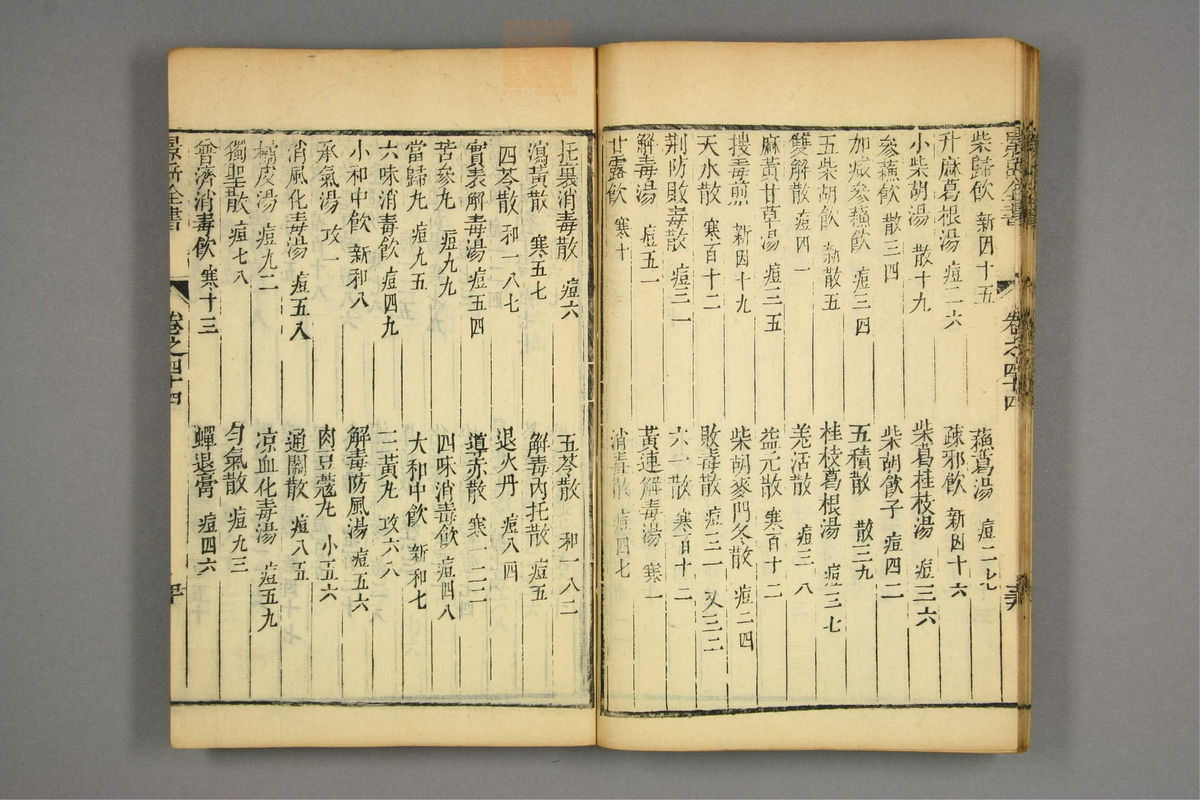 景岳全書 卷之四十四
柴歸飲 新因十五 蘓葛湯 痘二七
升麻葛根湯 痘二六 疎邪飲 新因十六
小柴胡湯 散十九 柴葛桂枝湯 痘三六
參蘓飲 散三四 柴胡飲子 痘四二
加減參蘓飲 痘三四 五積散 散三九
五柴胡飲 新散五 桂枝葛根湯 痘三七
雙解散 痘四一 羗活散 痘三八
麻黃甘草湯 痘三五 益元散 寒百十二
搜毒煎 新因十九 柴胡麥門冬散 痘二四
天水散 寒百十二 敗毒散 痘三一 又三二
荆防敗毒散 痘三一 六一散 寒百十二
解毒湯 痘五一 黃連解毒湯 寒一
甘露飲 寒十 消毒散 痘四七
托裏消毒散 痘六 五苓散 和一八二
瀉黃散 寒五七 解毒內托散 痘五
四苓散 和一八七 退火丹 痘八四
實表解毒湯 痘五四 導赤散 寒一二二
苦參丸 痘九九 四味消毒飲 痘四八
當歸丸 痘九五 大和中飲 新和七
六味消毒飲 痘四九 三黃丸 攻六八
小和中飲 新和八 解毒防風湯 痘五六
承氣湯 攻一 肉豆蔻丸 小五六
消風化毒湯 痘五八 通關散 痘八五
橘皮湯 痘九二 凉血化毒湯 痘五九
獨聖散 痘七八 勻氣散 痘九三
曾濟消毒飲 寒十三 蟬退膏 痘四六
景岳全書 卷之四十四